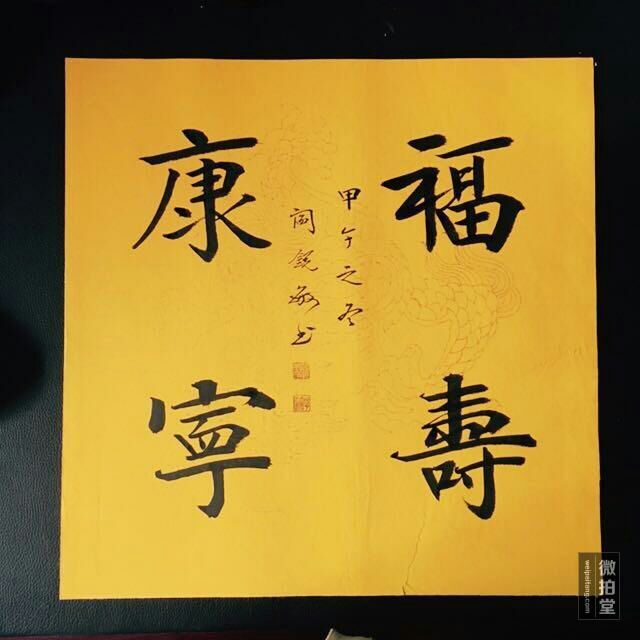 福壽
康寧
甲午之冬
閻銳敏书
微拍堂
weipaitang.com